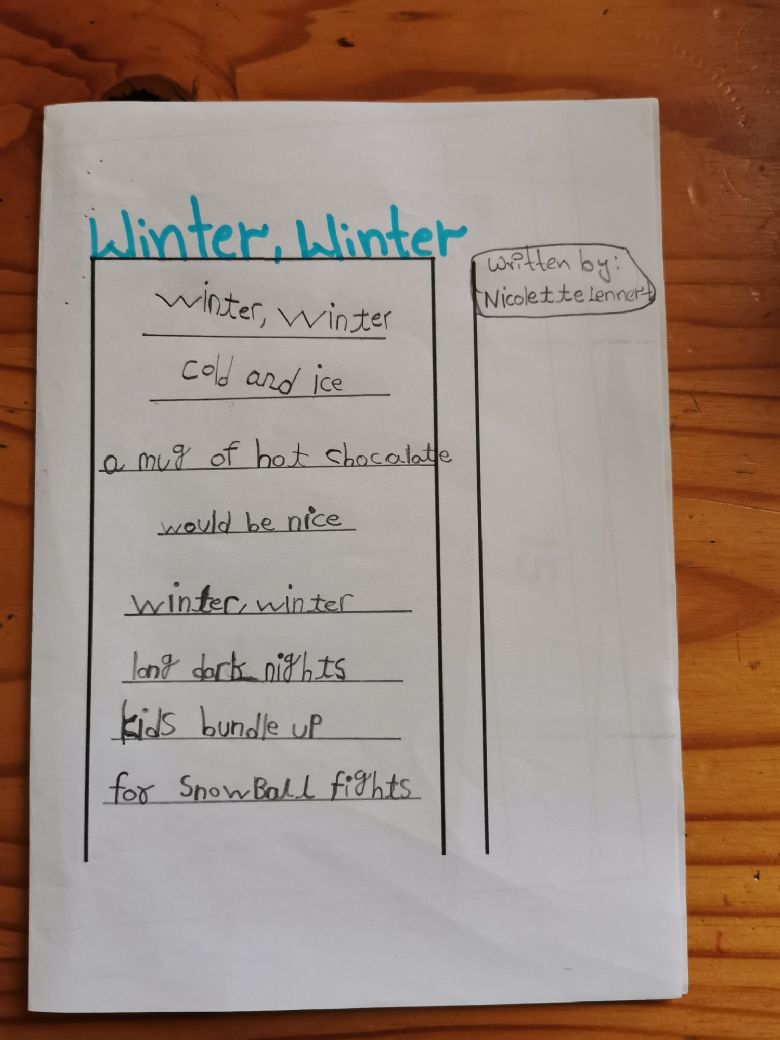 Winter, Winter
Written by:
Nicolette Lennert
Winter, Winter
cold and ice
a mug of hot chocalate
would be nice
winter, winter
long dark nights
kids bundle up
for SnowBall fights